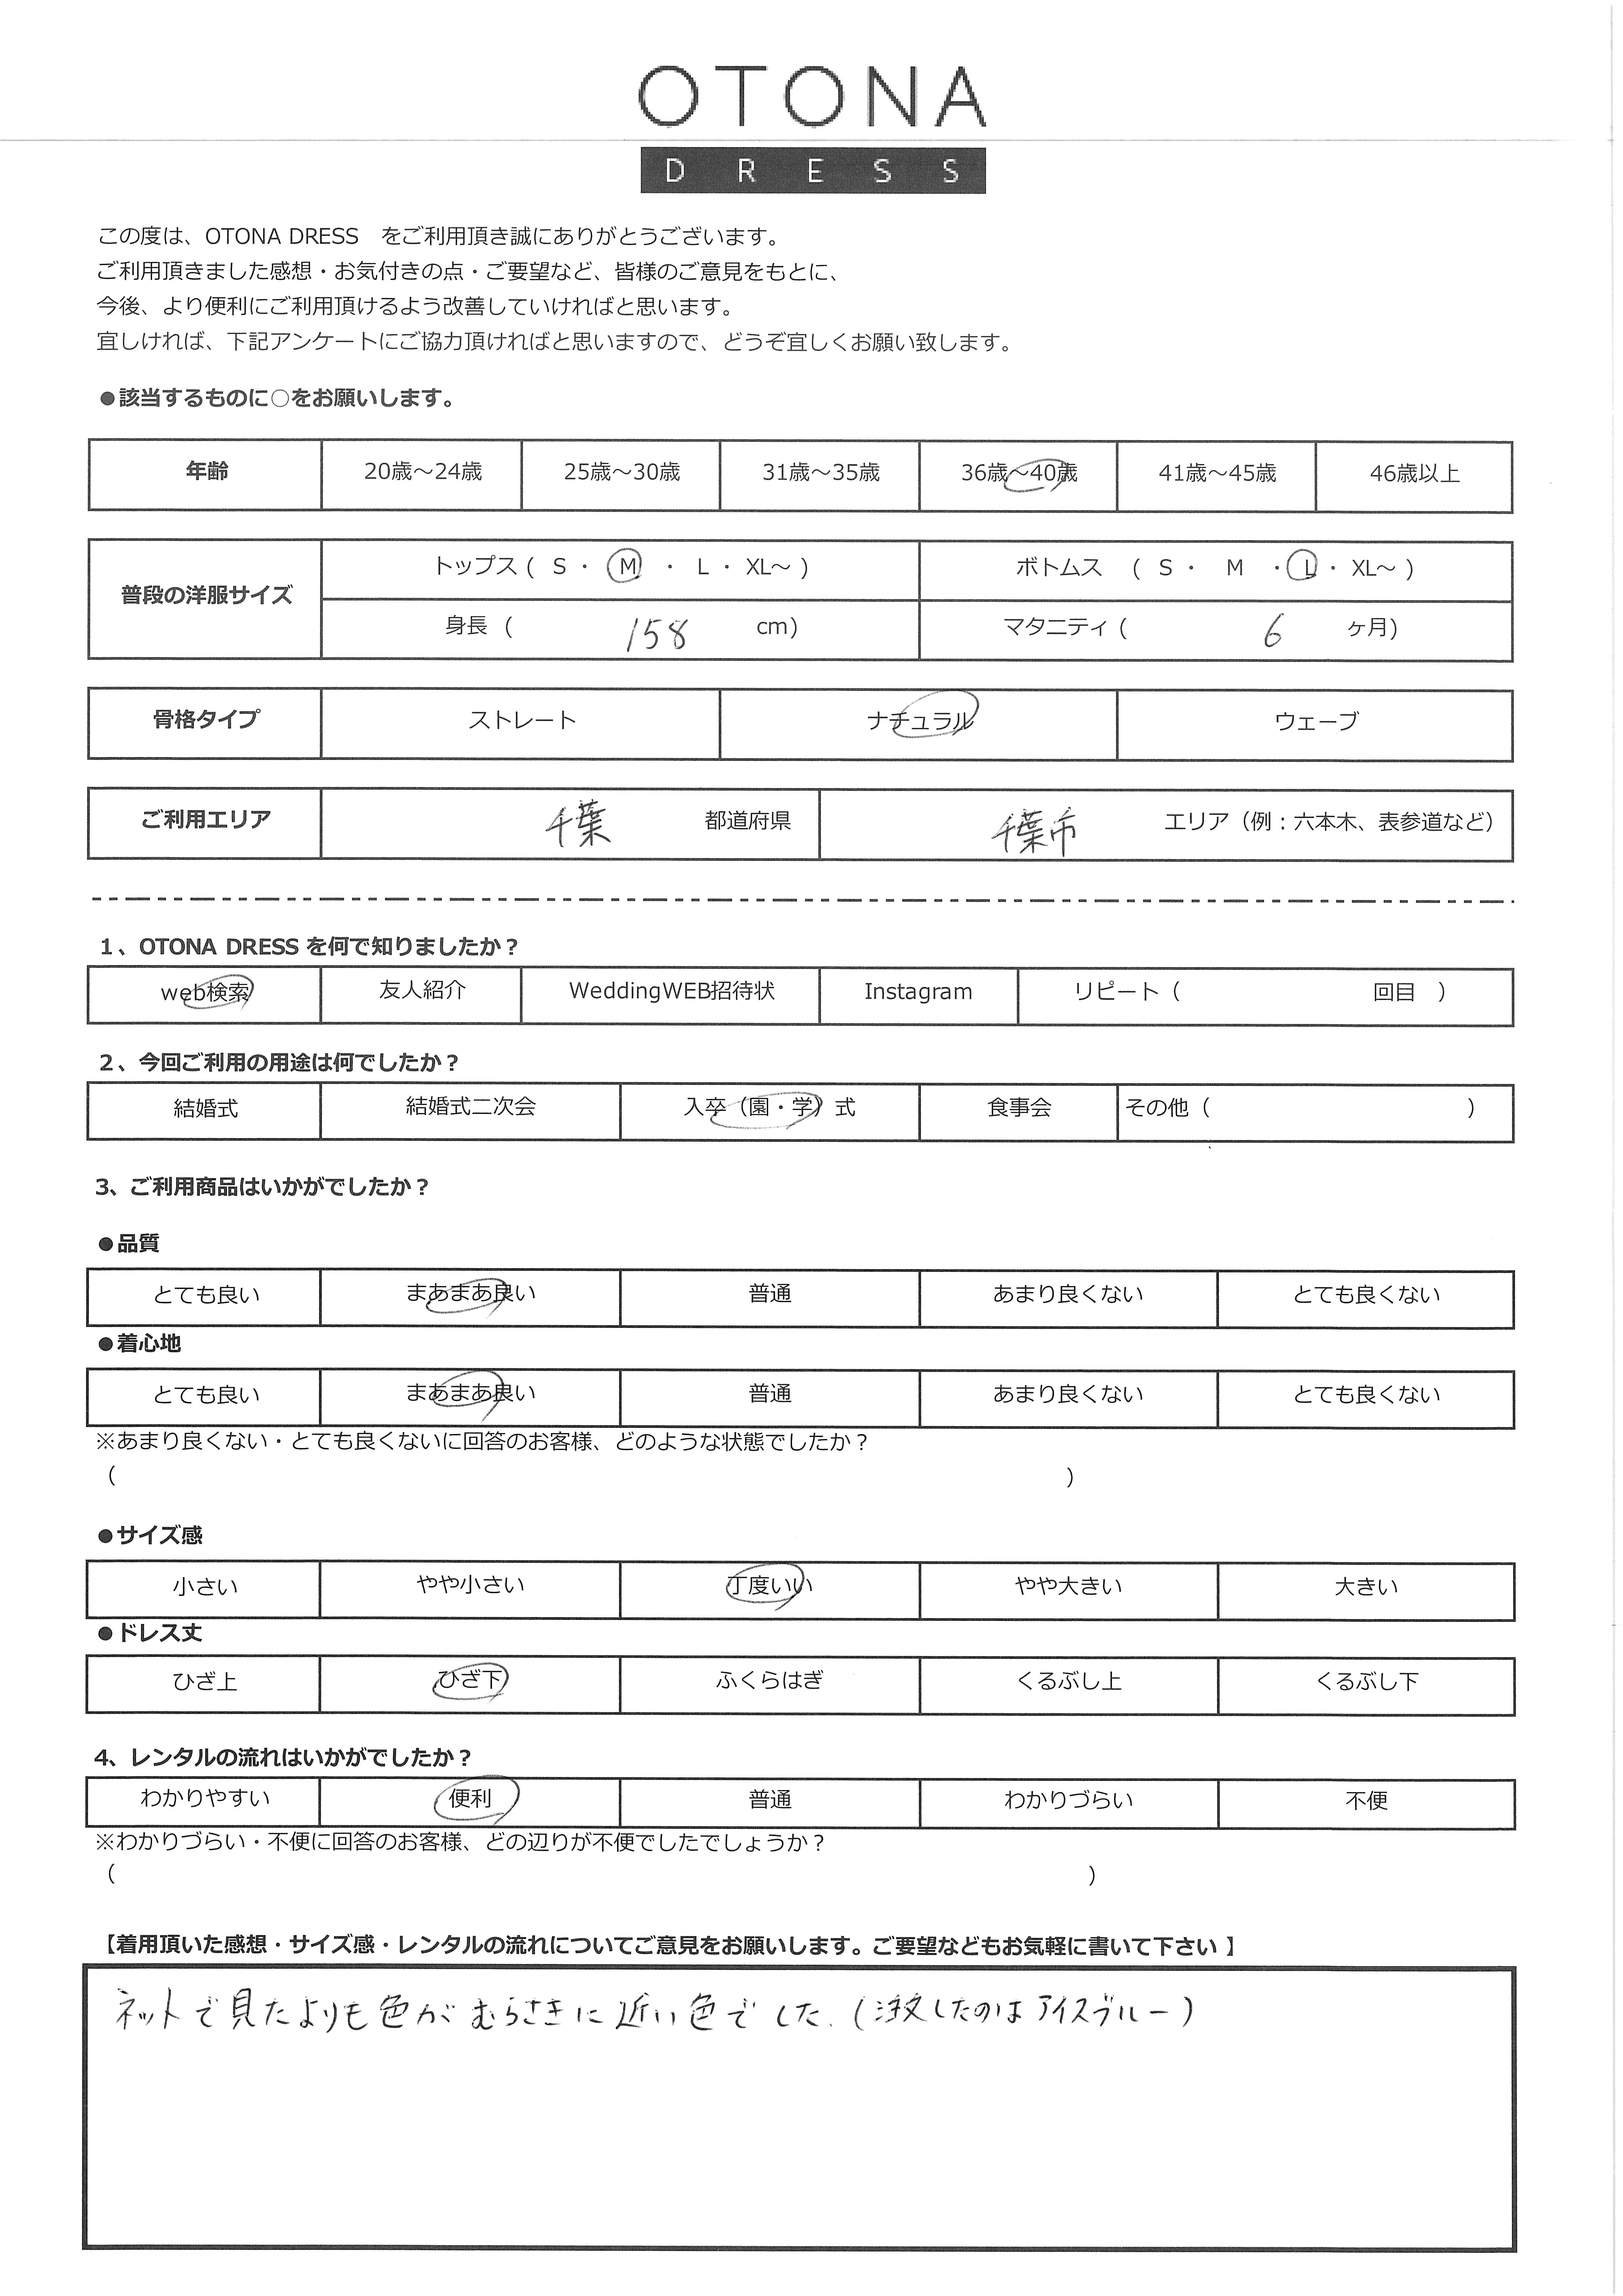 OTONA
DRESS
この度は、OTONA DRESS　をご利用頂き誠にありがとうございます。
ご利用頂きました感想・お気付きの点・ご要望など、皆様のご意見をもとに、
今後、より便利にご利用頂けるよう改善していければと思います。
宜しければ、下記アンケートにご協力頂ければと思いますので、どうぞ宜しくお願い致します。
●該当するものに○をお願いします。
年齢 20歳～24歳 25歳～30歳 31歳～35歳 36歳～40歳 41歳～45歳 46歳以上
普段の洋服サイズ
トップス ( S ・ M ・ L ・ XL～ ) ボトムス ( S ・ M ・ L ・ XL～ )
身長 ( 158 cm) マタニティ ( 6 ヶ月)
骨格タイプ ストレート ナチュラル ウェーブ
ご利用エリア 千葉 都道府県 千葉市 エリア（例：六本木、表参道など）
1、OTONA DRESS を何で知りましたか？
web検索 友人紹介 WeddingWEB招待状 Instagram リピート（ 回目 ）
2、今回ご利用の用途は何でしたか？
結婚式 結婚式二次会 入卒（園・学）式 食事会 その他（ ）
3、ご利用商品はいかがでしたか？
●品質
とても良い まあまあ良い 普通 あまり良くない とても良くない
●着心地
とても良い まあまあ良い 普通 あまり良くない とても良くない
※あまり良くない・とても良くないに回答のお客様、どのような状態でしたか？
（ ）
●サイズ感
小さい やや小さい 丁度いい やや大きい 大きい
●ドレス丈
ひざ上 ひざ下 ふくらはぎ くるぶし上 くるぶし下
4、レンタルの流れはいかがでしたか？
わかりやすい 便利 普通 わかりづらい 不便
※わかりづらい・不便に回答のお客様、どの辺りが不便でしたでしょうか？
（ ）
【着用頂いた感想・サイズ感・レンタルの流れについてご意見をお願いします。ご要望などもお気軽に書いて下さい 】
ネットで見たよりも色がむらさきに近い色でした.(注文したのはアイスブルー)